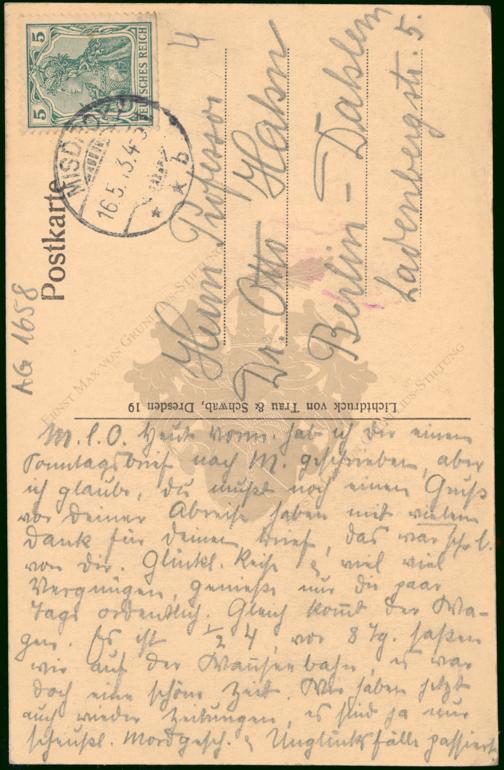 5 DEUTSCHES REICH 5
MISDROY
16.5.13.4-5
* * b
4
Postkarte
AG 1658
ERNST MAX VON GRUNELIUS-STIFTUNG
Herrn Professor
Dr. Otto Hahn
Berlin-Dahlem
Ladenbergstr. 5.
Lichtdruck von Trau & Schwab, Dresden 19
M. l. O. Heute Vorm. hab ich dir einen
Sonntagsbrief nach M. geschrieben, aber
ich glaube, du mußt noch einen Gruß
vor deiner Abreise haben mit vielem
Dank für deinen Brief, das war sehr l.
von dir. Glückl. Reise & viel viel
Vergnügen, genieße nur die paar
Tage ordentlich. Gleich kommt der Wa-
gen. Es ist ½ 4, vor 8 Tg. saßen
wir auf der Wannseebahn, es war
doch eine schöne Zeit. Wir haben jetzt
auch wieder Zeitungen, es sind ja nur
scheußl. Mordgesch. & Unglücksfälle passiert